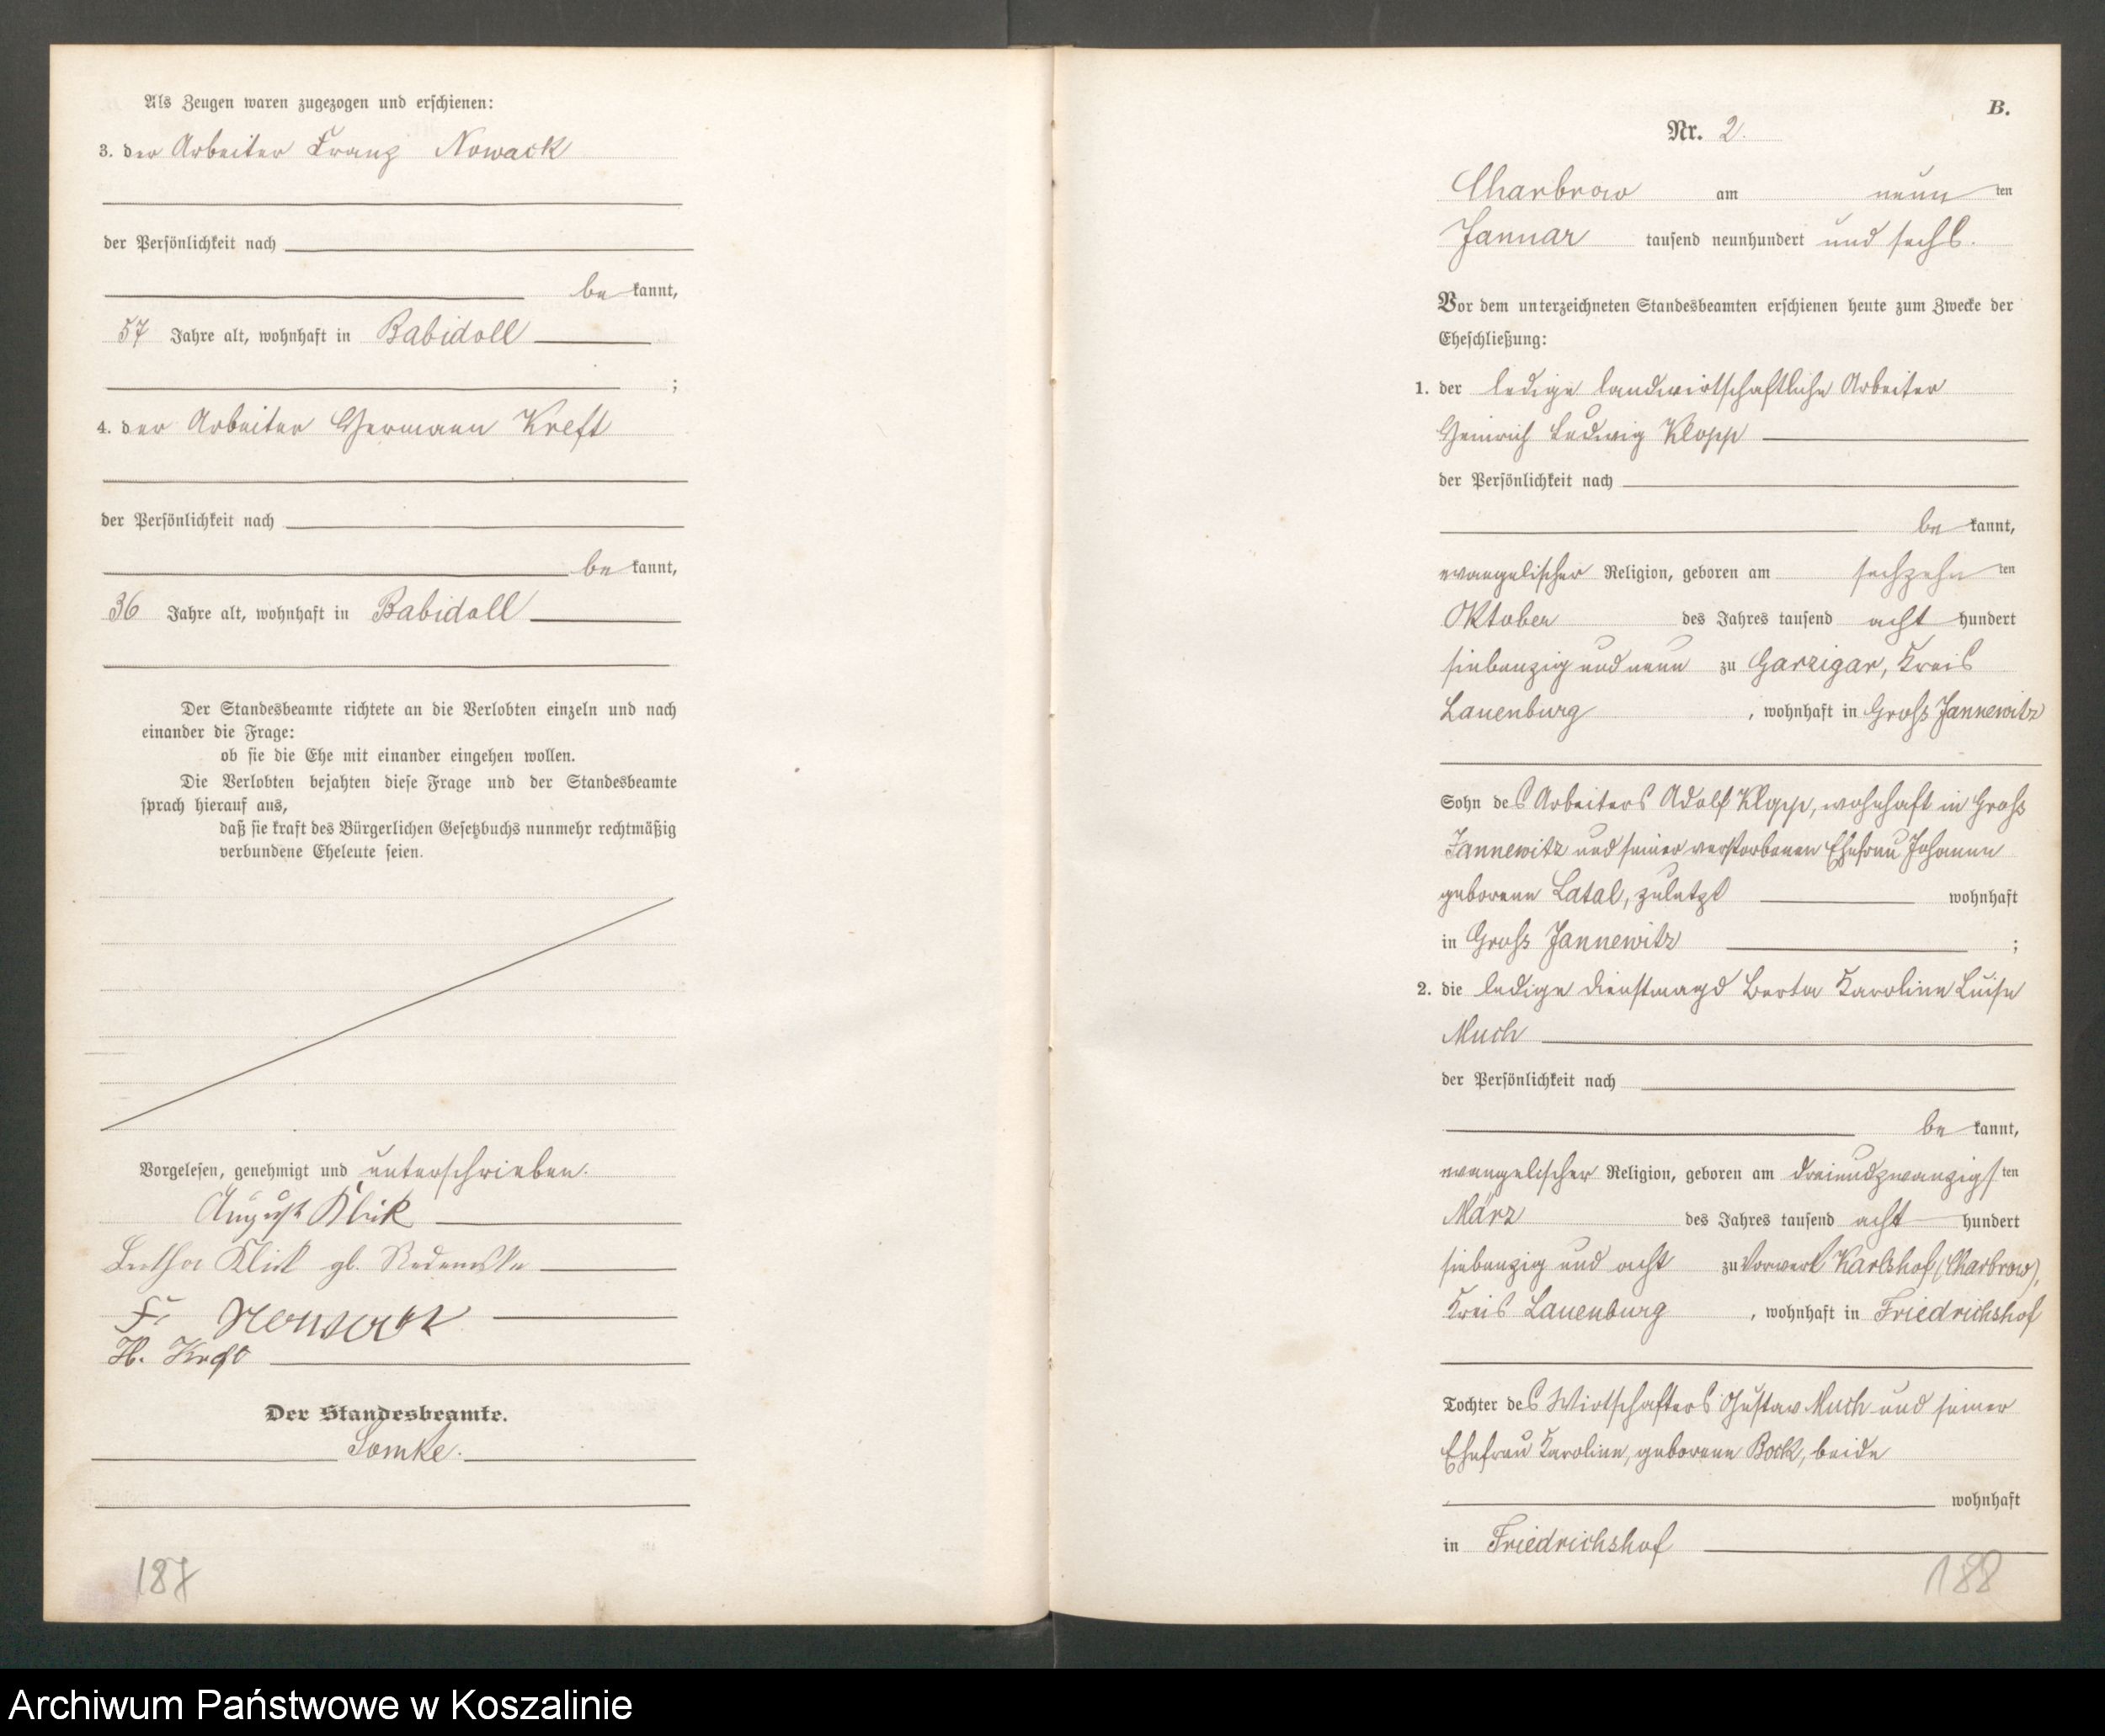 Als Zeugen waren zugezogen und erschienen:
3. der Arbeiter Franz Nowack
der Persönlichkeit nach
be kannt,
57 Jahre alt, wohnhaft in Babidoll
;
4. der Arbeiter Hermann Kreft
der Persönlichkeit nach
be kannt,
36 Jahre alt, wohnhaft in Babidoll
Der Standesbeamte richtete an die Verlobten einzeln und nach
einander die Frage:
ob sie die Ehe mit einander eingehen wollen.
Die Verlobten bejahten diese Frage und der Standesbeamte
sprach hierauf aus,
daß sie kraft des Bürgerlichen Gesetzbuchs nunmehr rechtmäßig
verbundene Eheleute seien.
Vorgelesen, genehmigt und unterschrieben.
August Klick
Klick gb.
F. Nowack
H. Kreft
Der Standesbeamte.
Lomke.
187
B.
Nr. 2.
Charbrow am neun ten
Januar tausend neunhundert und sechs.
Vor dem unterzeichneten Standesbeamten erschienen heute zum Zwecke der
Eheschließung:
1. der ledige landwirtschaftliche Arbeiter
Heinrich Ludwig Klopp
der Persönlichkeit nach
be kannt,
evangelischer Religion, geboren am sechzehn ten
Oktober des Jahres tausend acht hundert
siebenzig und neun zu Garzigar, Kreis
Lauenburg , wohnhaft in Groß Jannewitz
Sohn des Arbeiters Adolf Klopp, wohnhaft in Groß
Jannewitz und seiner verstorbenen Ehefrau Johanne
geborene Latal, zuletzt wohnhaft
in Groß Jannewitz ;
2. die ledige Dienstmagd Berta Karoline Luise
Much
der Persönlichkeit nach
be kannt,
evangelischer Religion, geboren am dreiundzwanzigsten
März des Jahres tausend acht hundert
siebenzig und acht zu Vorwerk Karlshof (Charbrow),
Kreis Lauenburg , wohnhaft in Friedrichshof
Tochter des Wirtschafters Gustav Much und seiner
Ehefrau Karoline, geborene Bock, beide
wohnhaft
in Friedrichshof
188
Archiwum Państwowe w Koszalinie